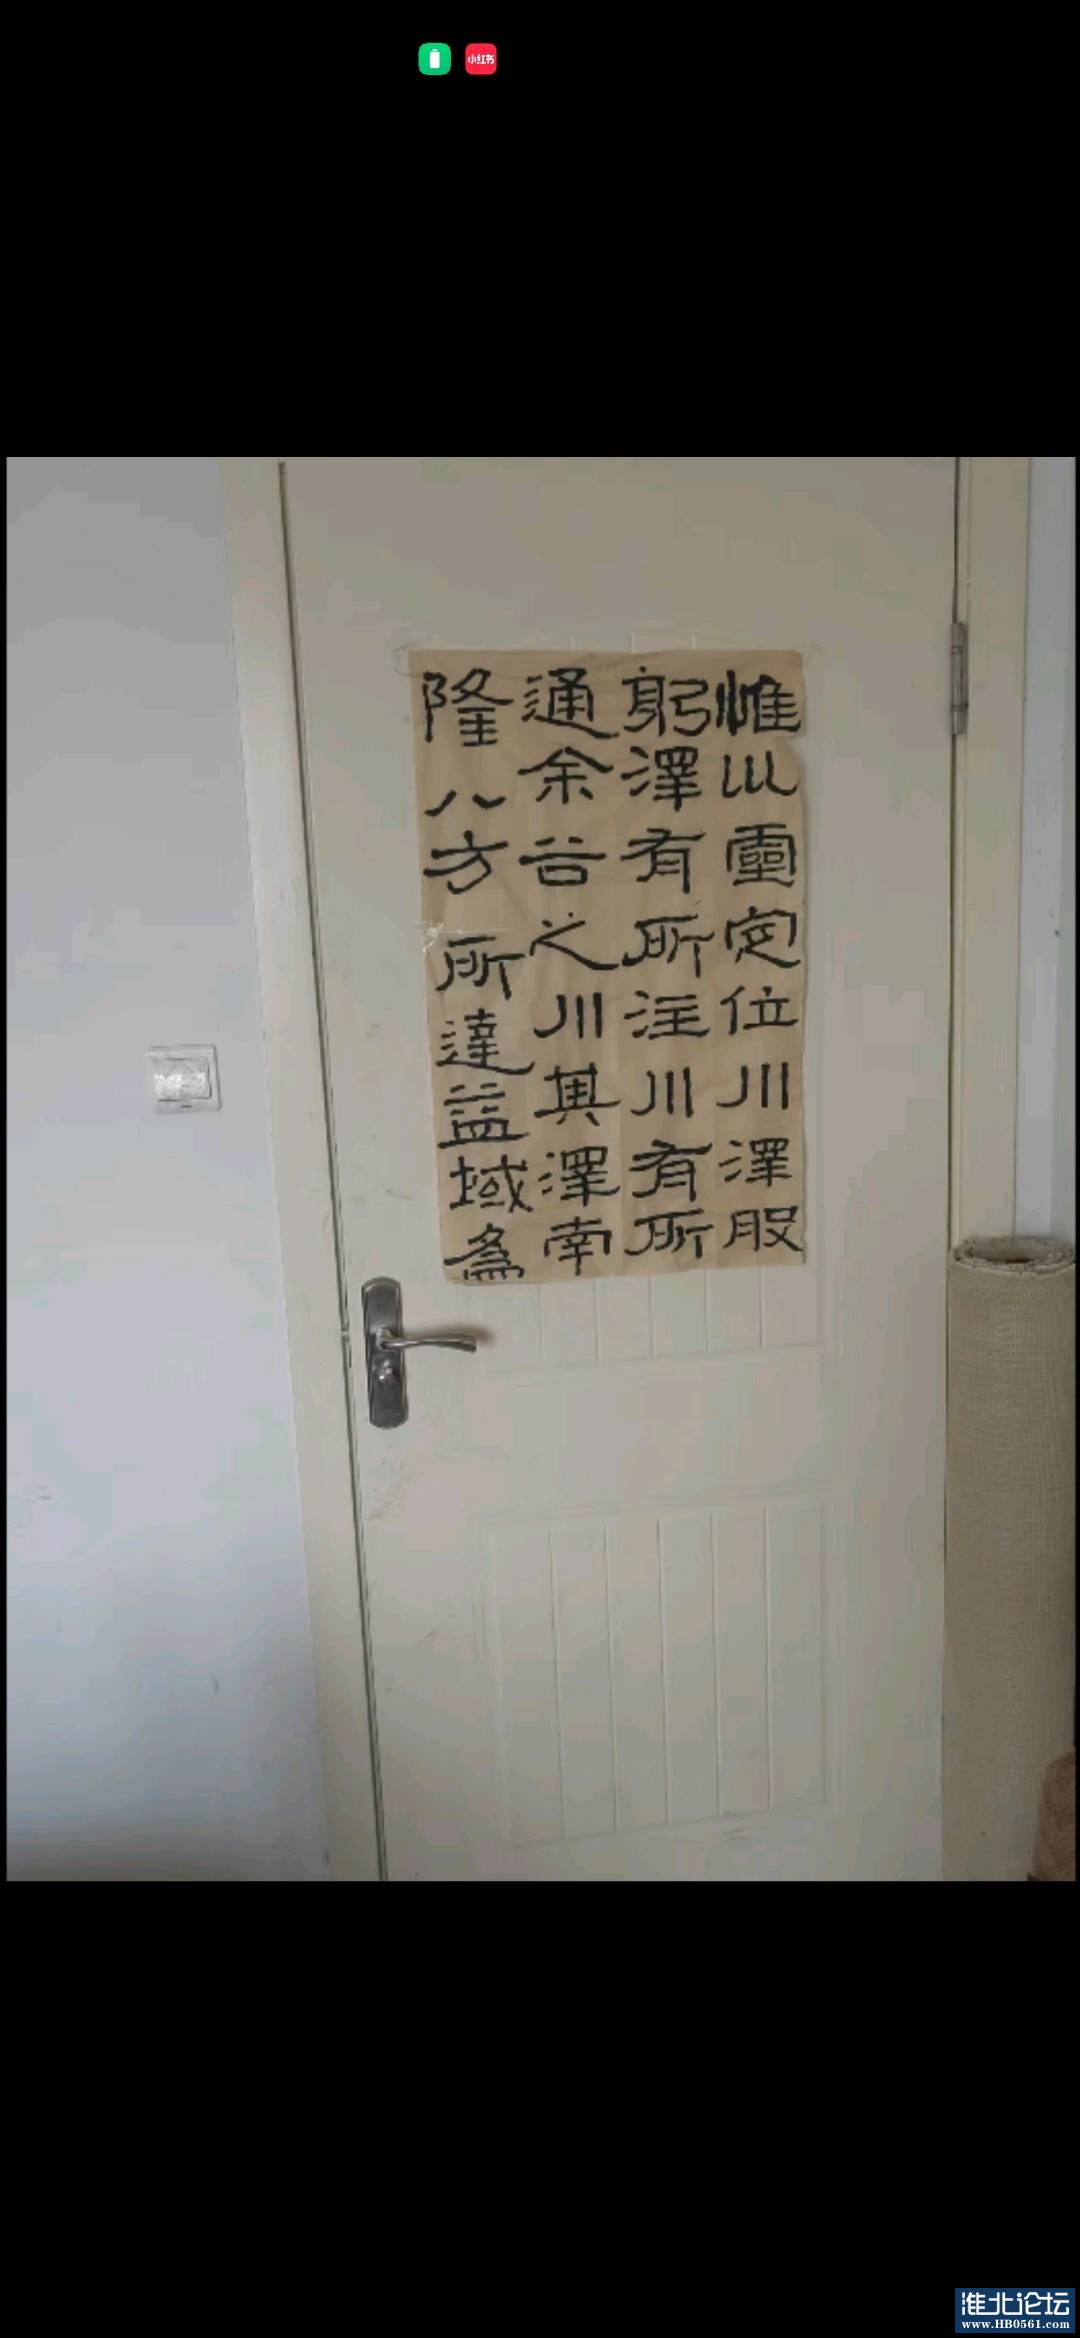 小红书
惟巛靈定位川澤股
躬澤有所注川有所
通余谷之川其澤南
隆八方所達益域為
淮北论坛
www.HB0561.com